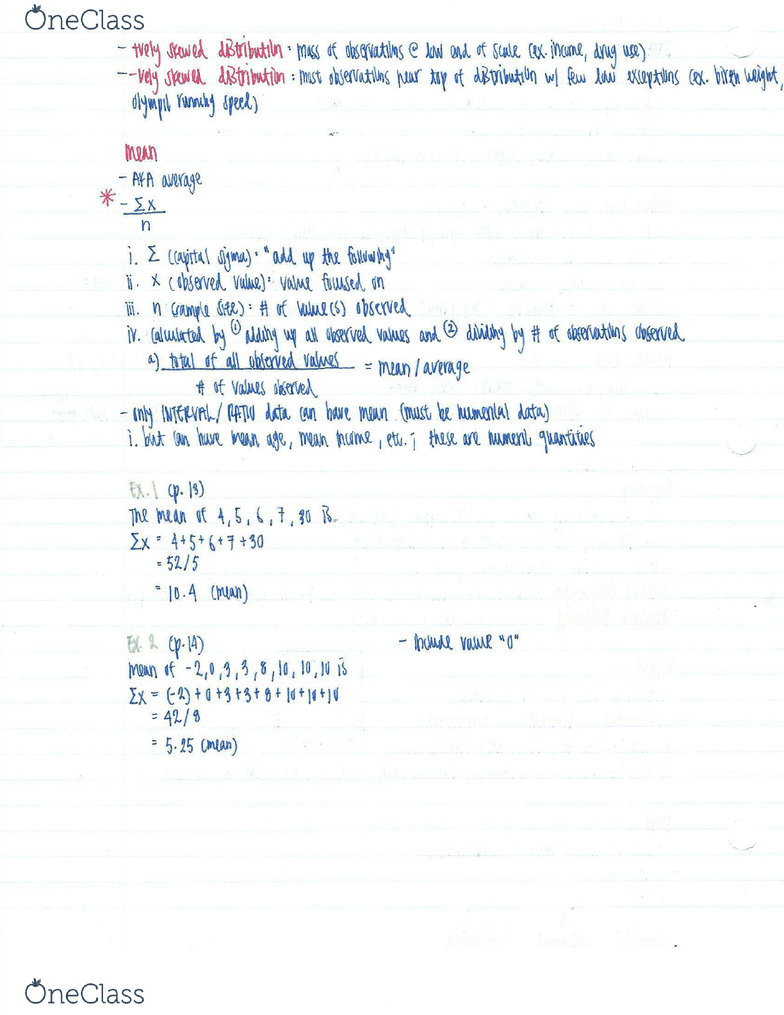 OneClass
- +vely skewed distribution: mass of observations @ low end of scale (ex. income, drug use)
- -vely skewed distribution: most observations near top of distribution w/ few low exceptions (ex. birth weight,
olympic running speed)
mean
- AKA average
* - Σx
n
i. Σ (capital sigma): "add up the following"
ii. x (observed value): value focused on
iii. n (sample size): # of value(s) observed
iv. calculated by ① adding up all observed values and ② dividing by # of observations observed
a) total of all observed values = mean/average
# of values observed
- only INTERVAL/RATIO data can have mean (must be numerical data)
i. but can have mean age, mean income, etc.; these are numeric quantities
Ex. 1 (p. 13)
The mean of 4, 5, 6, 7, 30 is
Σx = 4+5+6+7+30
= 52/5
= 10.4 (mean)
Ex. 2 (p. 14) - Include value "0"
mean of -2, 0, 3, 3, 8, 10, 10, 10 is
Σx = (-2) + 0 + 3 + 3 + 8 + 10 + 10 + 10
= 42/8
= 5.25 (mean)
OneClass